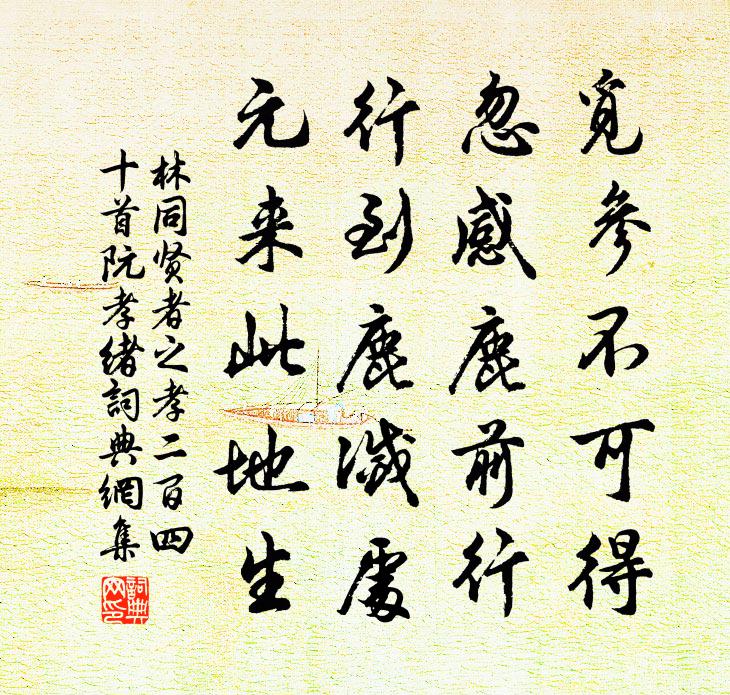 覓參不可得
忽感鹿前行
行到鹿滅處
元来此地生
林同贤者之孝二百四
十首阮孝緒詞典網集
詞典
网印